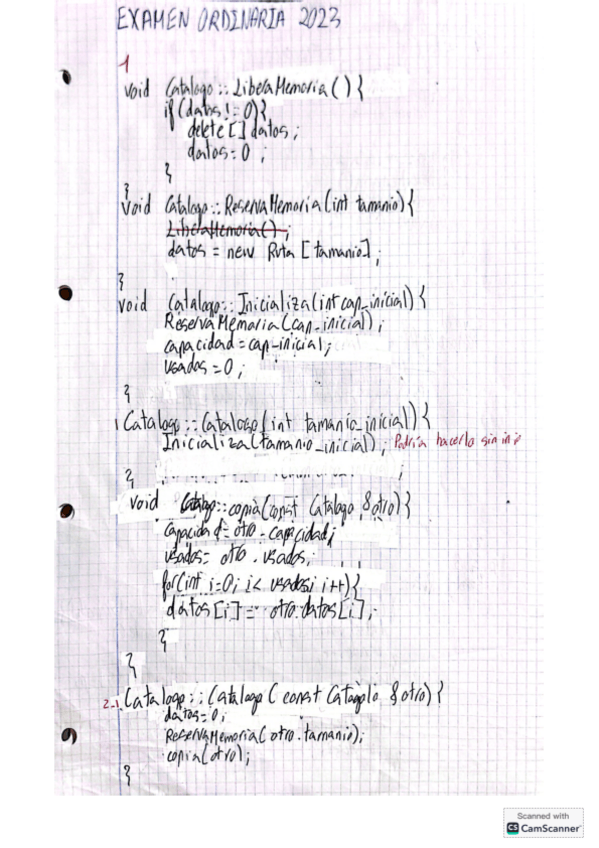 EXAMEN ORDINARIA 2023
1
void Catalogo::LiberaMemoria(){
if(datos != 0){
delete[] datos;
datos=0 ;
}
}
void Catalogo::ReservaMemoria(int tamanio){
LiberaMemoria();
datos = new Ruta[tamanio];
}
void Catalogo::Inicializa(int cap_inicial){
ReservaMemoria(cap_inicial);
capacidad=cap_inicial;
usados=0;
}
Catalogo::Catalogo(int tamanio_inicial){
Inicializa(tamanio_inicial); Podría hacerlo sin
}
void Catalogo::copia(const Catalogo &otro){
capacidad=otro.capacidad;
usados= otro.usados;
for(int i=0; i< usados; i++){
datos[i]= otro.datos[i];
}
}
2-1. Catalogo::Catalogo(const Catalogo &otro){
datos=0;
ReservaMemoria(otro.tamanio);
copia(otro);
}
Scanned with
CS CamScanner